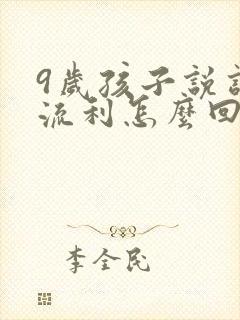 9歲孩子說
流利怎麼回
李全民